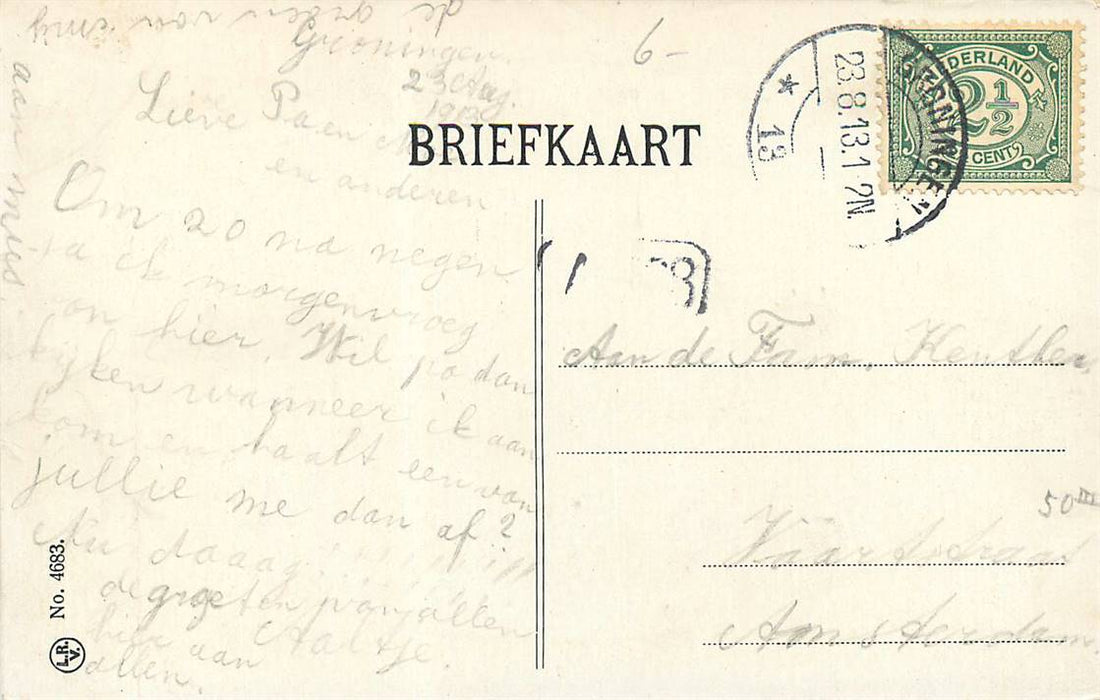 Groningen.
23 Aug.
Lieve Pa en
en anderen
Om 20 na negen
ga ik morgenvroeg
van hier. Wil pa dan
kyken wanneer ik aan
kom en haalt een van
jullie me dan af?
Nu daaag!
de groeten van allen
hier aan
allen.
aan mies.
de van
6-
BRIEFKAART
23.8.13.1-2N.
GRONINGEN
13
NEDERLAND
2½
CENT
Aan de Fam.
50 III
Vaartstraat
Amsterdam.
No. 4683.
L.R.
V.